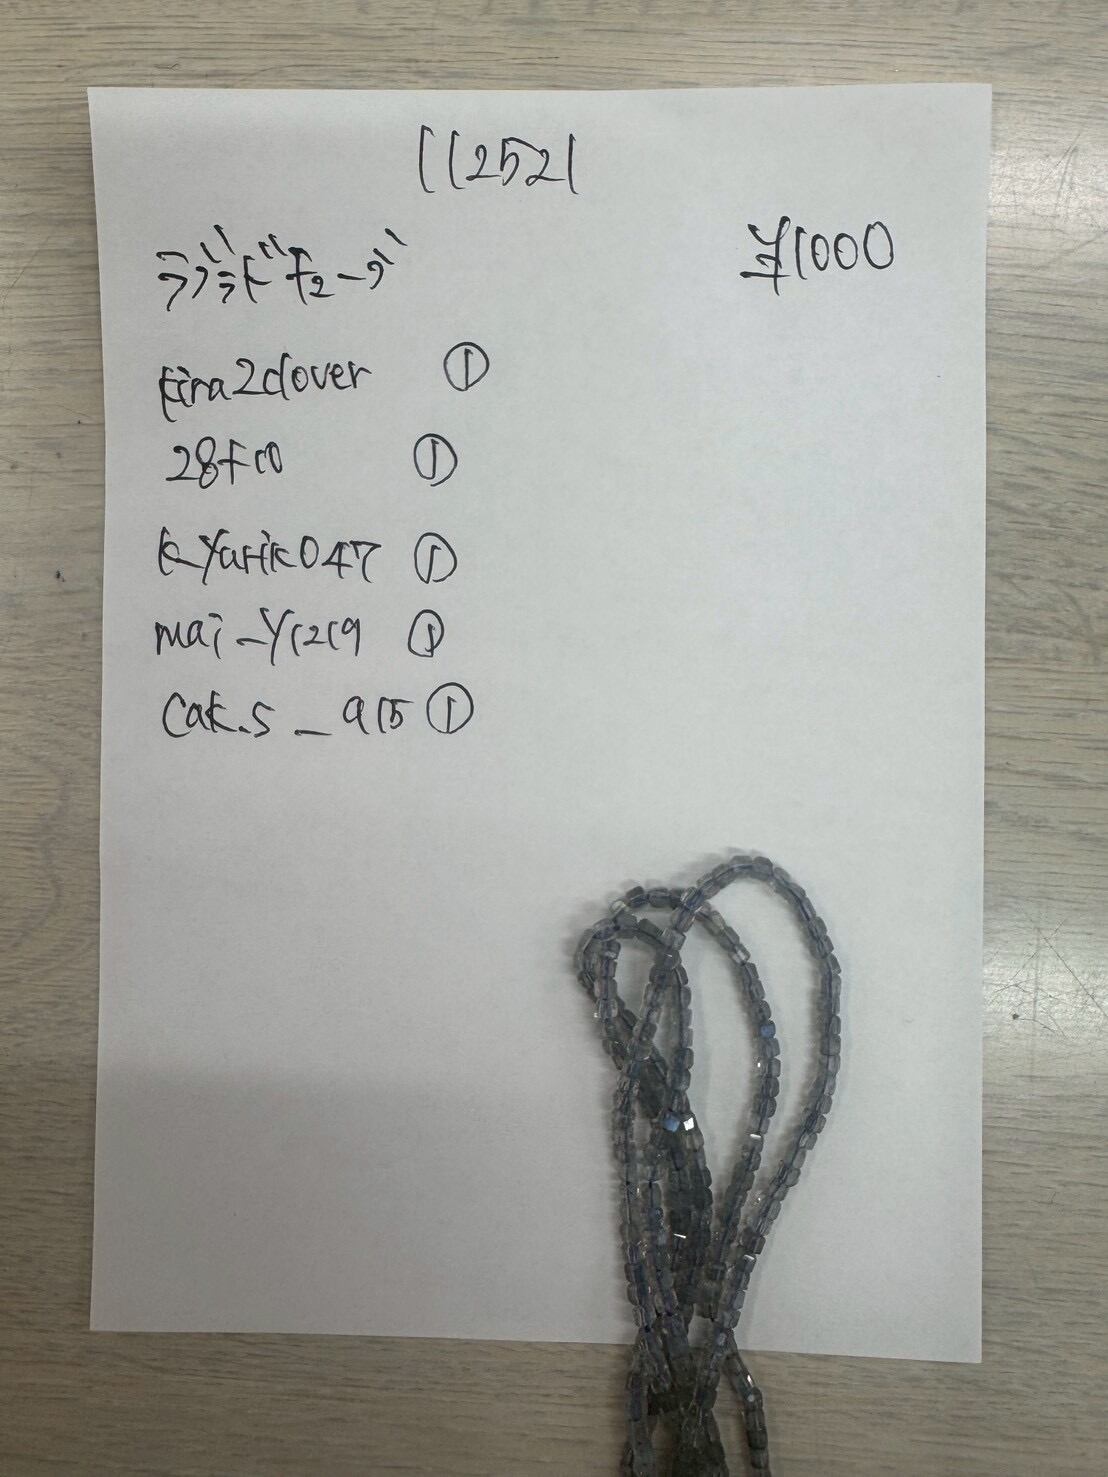 112521
ラブラドキューブ
¥1000
kira2clover ①
28fco ①
k_yarik047 ①
mai_y1219 ①
cak.s_915 ①